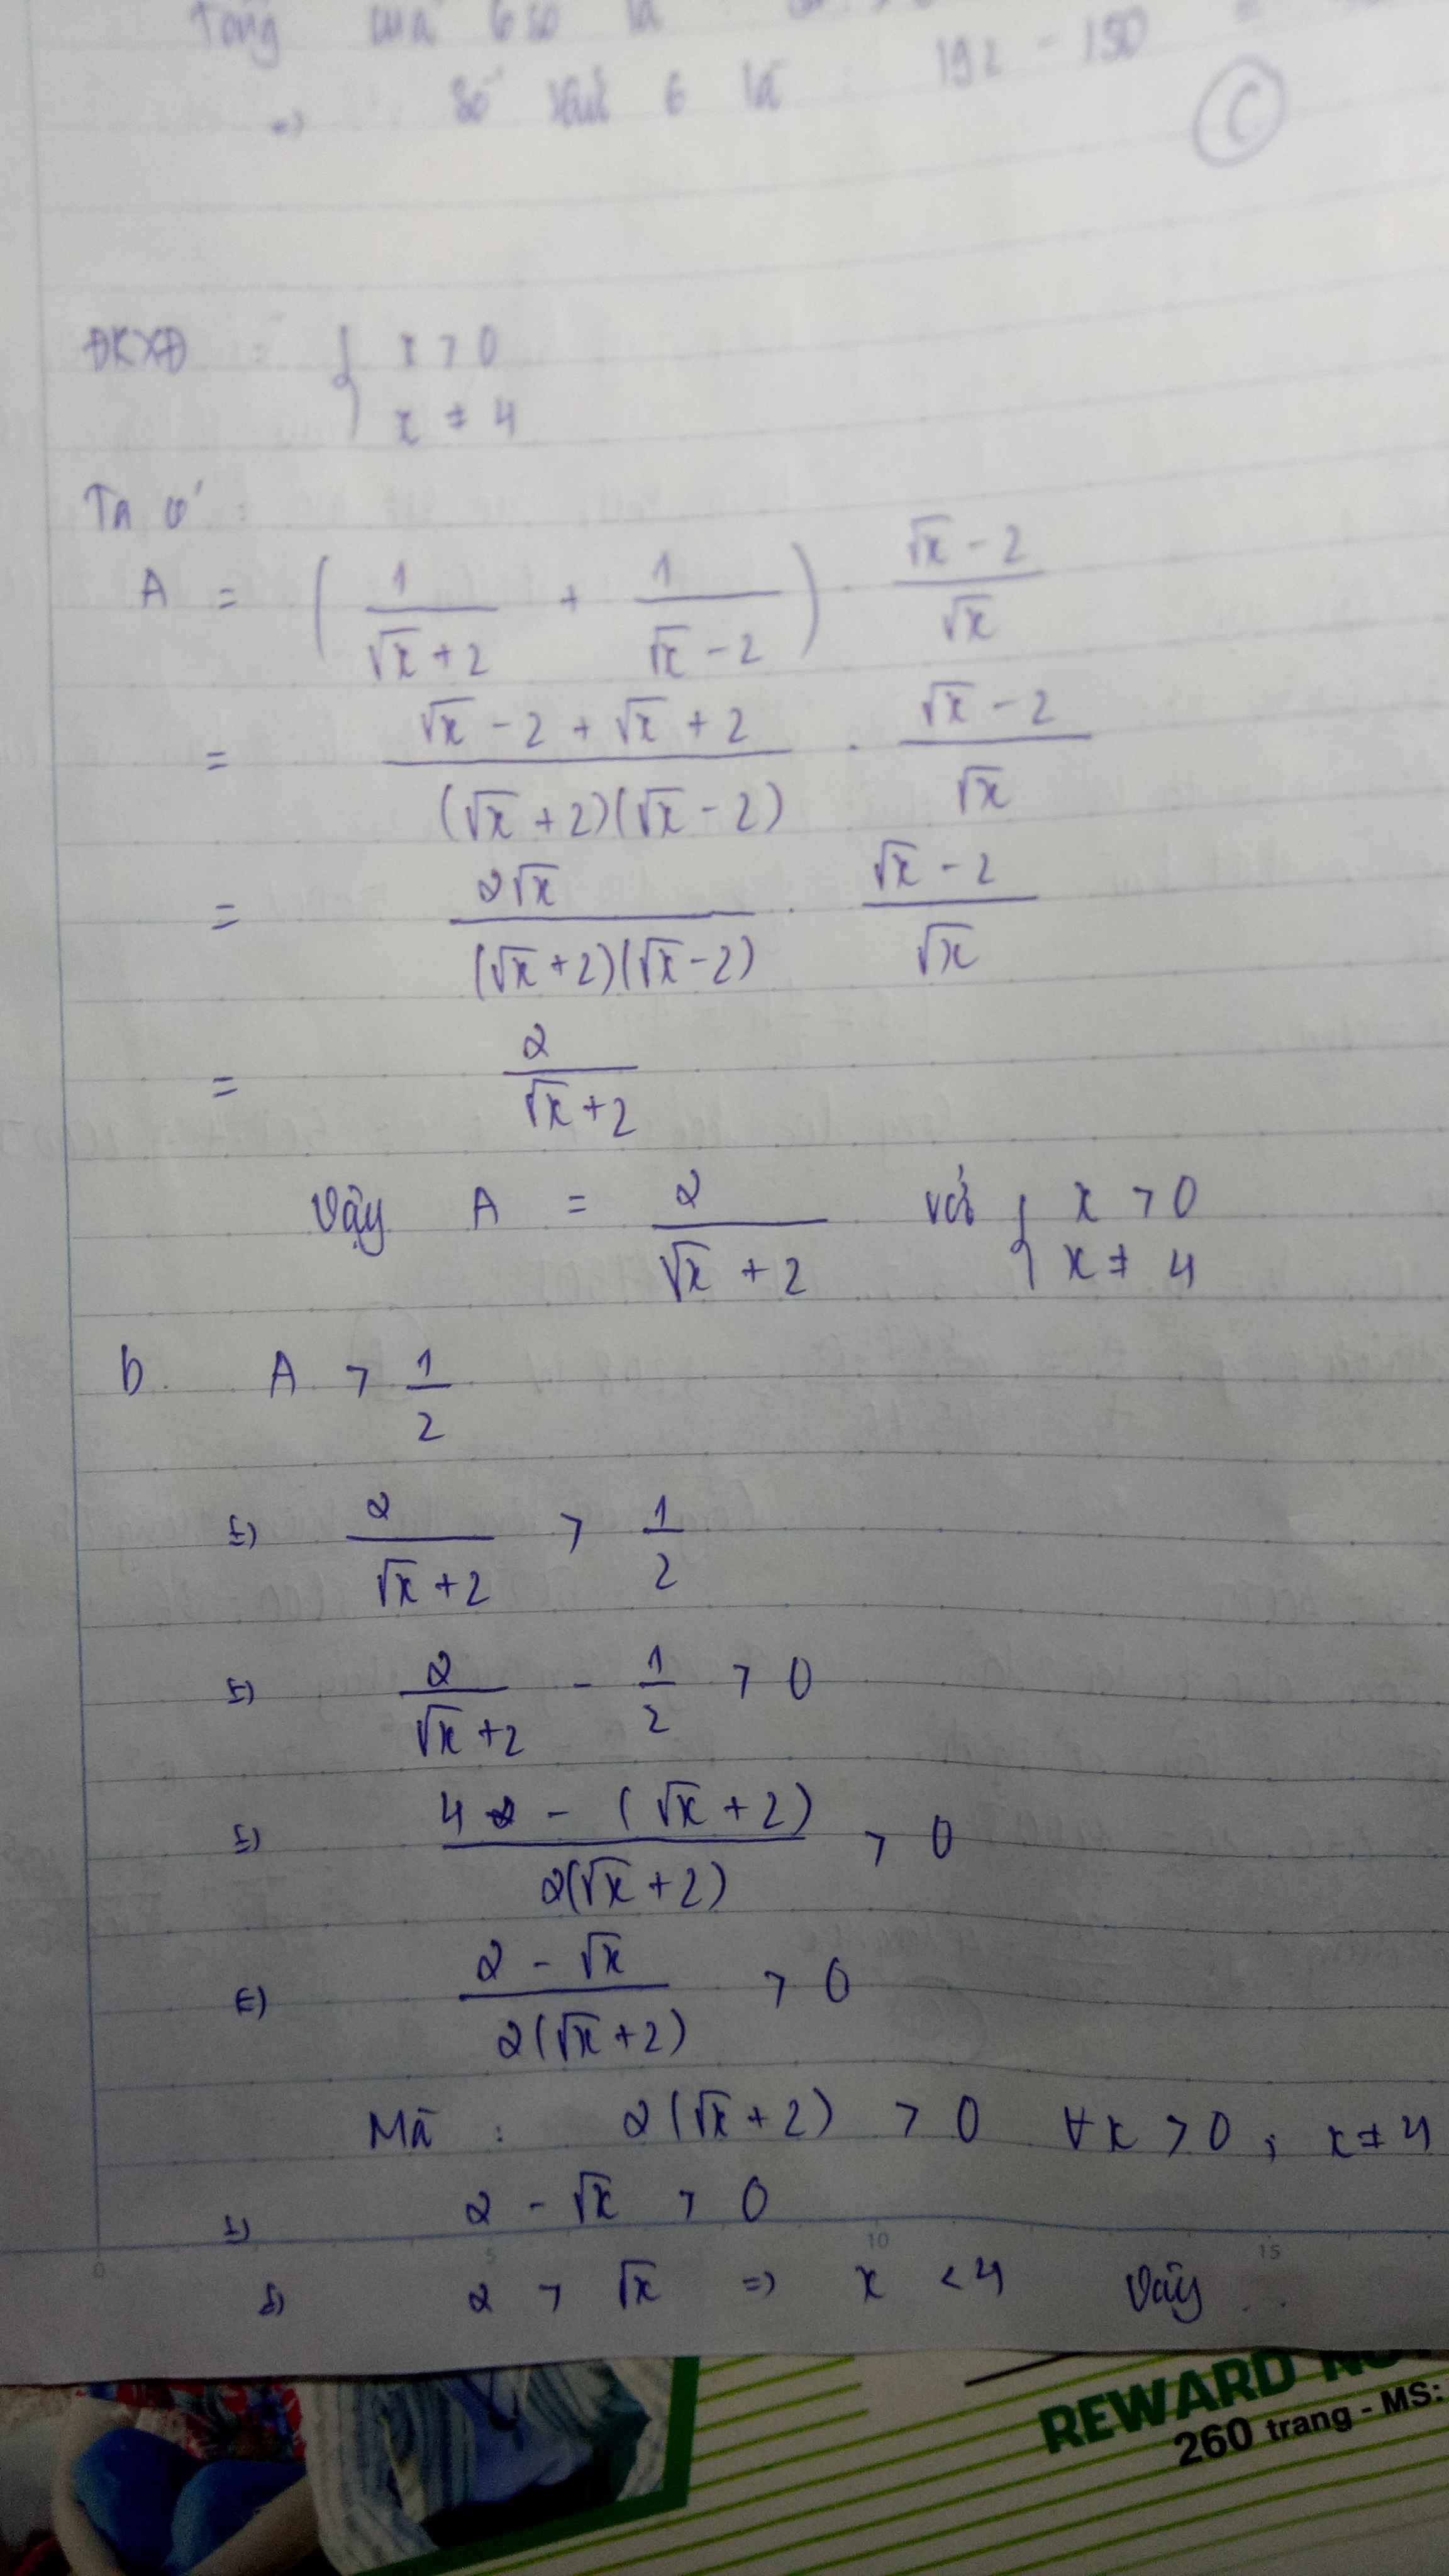 Tổng của 6 số là
=) Số thứ 6 là : 192 - 150 =
C
ĐKXĐ : { x > 0
x ≠ 4
Ta có :
A = ( 1/(√x + 2) + 1/(√x - 2) ) . (√x - 2)/√x
= (√x - 2 + √x + 2)/((√x + 2)(√x - 2)) . (√x - 2)/√x
= 2√x/((√x + 2)(√x - 2)) . (√x - 2)/√x
= 2/(√x + 2)
Vậy A = 2/(√x + 2) với { x > 0
x ≠ 4
b. A > 1/2
(=) 2/(√x + 2) > 1/2
(=) 2/(√x + 2) - 1/2 > 0
(=) (4 - (√x + 2))/(2(√x + 2)) > 0
(=) (2 - √x)/(2(√x + 2)) > 0
Mà : 2(√x + 2) > 0 ∀x > 0 ; x ≠ 4
(=) 2 - √x > 0
(=) 2 > √x =) x < 4 Vậy ...
0 5 10 15
REWARD
260 trang - MS: